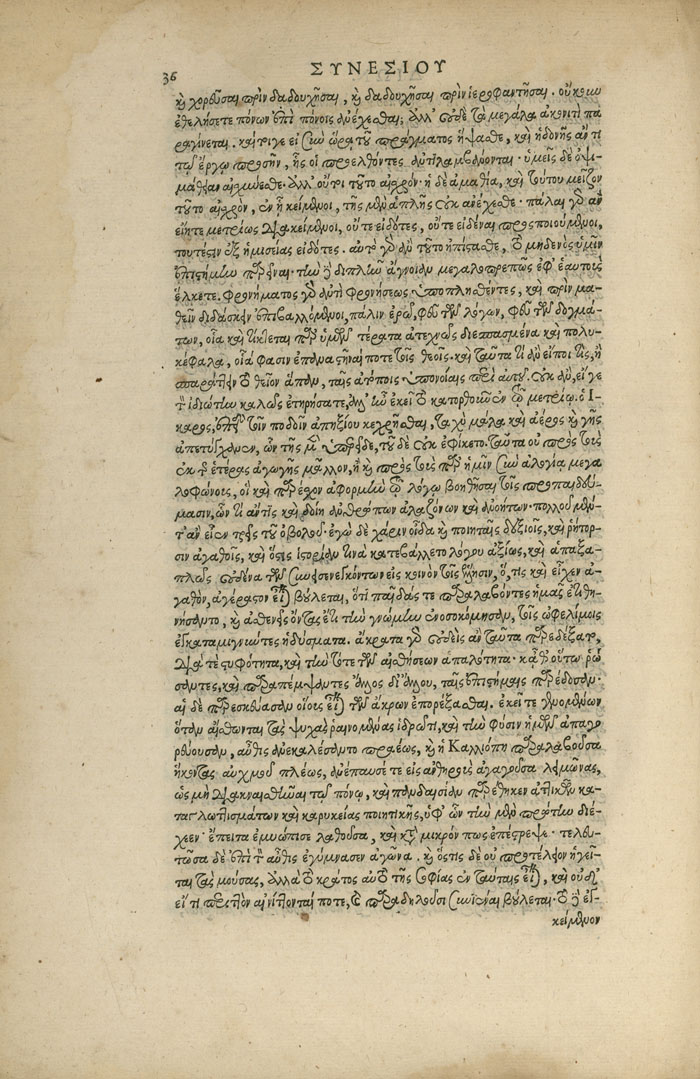 36
ΣΥΝΕΣΙΟΥ
καὶ χορεῦσαι πρὶν δαδουχῆσαι, καὶ δαδουχῆσαι πρὶν ἱεροφαντῆσαι. οὔκουν
ἐθελήσετε πόνων ἐπὶ πόνοις ἀνέχεσθαι; ἀλλ' οὐδὲ τὰ μεγάλα ἀκονιτὶ πα
ραγίνεται. καί τοιγε εἰ σὺν ὥρᾳ τοῦ πράγματος ἥψασθε, καὶ ἡδονῆς ἄν τι
τῷ ἔργῳ προσῆν, ἧς οἱ προελθόντες ἀντιλαμβάνονται. ὑμεῖς δὲ ὀψι-
μαθεῖν αἰσχύνεσθε. ἀλλ' οὔτι τοῦτο αἰσχρόν. ἡ δὲ ἀμαθία, καὶ τούτου μεῖζον
τοῦτο αἰσχρόν, ἐν ᾗ κείμενοι, τῆς μὲν ἁπλῆς οὐκ ἀνέχεσθε. πάλαι γὰρ ἂν
εἴητε μετρίως διακείμενοι, οὔτε εἰδότες, οὔτε εἰδέναι προσποιούμενοι,
τουτέστιν ἐξ ἡμισείας εἰδότες. αὐτὸ γὰρ ἂν τοῦτο ἠπίστασθε, τὸ μηδενὸς ὑμῖν
ἐπιστήμην παρεῖναι. τὴν δὲ διπλῆν ἄγνοιαν μεγαλοπρεπῶς ἐφ' ἑαυτοὺς
ἕλκετε. φρονήματος γὰρ ἀντὶ φρονήσεως ὑποπλησθέντες, καὶ πρὶν μα-
θεῖν διδάσκειν ἐπιβαλλόμενοι, πάλιν ἐρῶ, φεῦ τῶν λόγων, φεῦ τῶν δογμά-
των, οἷα καὶ τίκτεται παρ' ὑμῶν τέρατα ἀτεχνῶς διεσπασμένα καὶ πολυ-
κέφαλα, οἷά φασιν ἐπαναστῆναί ποτε τοῖς θεοῖς. καὶ ταῦτα τί ἂν εἴποι τις, ἢ
σπαράττειν τὸ θεῖον ἅπαν, ταῖς ἀτόποις ὑπονοίαις περὶ αὐτοῦ. οὐκ ἂν, εἴ γε
τὸν ἰδιώτην καλῶς ἐτηρήσατε, ἀλλ' ἦν ἐκεῖ τὸ κατορθοῦν ἐν τῷ μετρίῳ. ὁ Ἴ-
καρος, ἐπεὶ τοῖν ποδοῖν ἀπηξίου κεχρῆσθαι, ταχὺ μάλα καὶ ἀέρος καὶ γῆς
ἀπετύγχανεν, ὧν τῆς μὲν ὑπερεῖδε, τοῦ δὲ οὐκ ἐφίκετο. ταῦτα οὐ πρὸς τοὺς
ἐκ τῆς ἑτέρας ἀγωγῆς μᾶλλον, ἢ καὶ πρὸς τοὺς παρ' ἡμῖν σὺν ἀλογίᾳ μεγα
λοφώνους, οἳ καὶ παρέσχον ἀφορμὴν τῷ λόγῳ βοηθῆσαι τοῖς προπαιδεύ-
μασιν, ὧν τί ἄν τις καὶ δέοι ἀνθρώπων ἀλαζόνων καὶ ἀνοήτων. πολλοῦ μέν-
τ' ἂν εἶεν τρεῖς τοῦ ὀβολοῦ. ἐγὼ δὲ χάριν οἶδα καὶ ποιηταῖς δεξιοῖς, καὶ ῥήτορ-
σιν ἀγαθοῖς, καὶ ὅστις ἱστορίαν τινὰ κατεβάλλετο λόγου ἀξίως, καὶ ἁπαξα-
πλῶς οὐδένα τῶν συνεισενεγκόντων εἰς κοινὸν τοῖς Ἕλλησιν, ὅ, τις καὶ εἶχεν ἀ-
γαθὸν, ἀγέραστον εἶναι βούλεται, ὅτι παῖδάς τε παραλαβόντες ἡμᾶς ἐτιθη-
νήσαντο, καὶ ἀσθενεῖς ὄντας ἔτι τὴν γνώμην ἐνοσοκόμησαν, τοῖς ὠφελίμοις
ἐγκαταμιγνύντες ἡδύσματα. ἄκρατα γὰρ οὐδεὶς ἂν ταῦτα παρεδέξατο,
διά τε τρυφότητα, καὶ τὴν τότε τῶν αἰσθήσεων ἁπαλότητα. καθ' οὕτω ῥώ
σαντες, καὶ παραπέμψαντες ἄλλος δι' ἄλλου, ταῖς ἐπιστήμαις παρέδοσαν.
αἱ δὲ παρεσκεύασαν οἵους εἶναι τῶν ἄκρων ἐπορέξασθαι. ἐκεῖ τε γενομένων
ὅταν αἴσθωνται τὰς ψυχὰς ῥαινομένας ἱδρῶτι, καὶ τὴν φύσιν ἡμῶν ἀπαγο
ρεύουσαν, αὖθις ἀνεκαλέσαντο πραέως, καὶ ἡ Καλλιόπη παραλαβοῦσα
ἥκοντας αὐχμοῦ πλέως, ἀνέπαυσέ τε εἰς ἀνθηροὺς ἀγαγοῦσα λειμῶνας,
ὡς μὴ διακναισθῆναι τῷ πόνῳ, καὶ πανδαισίαν παρέθηκεν ἀττικῶν κα-
ταγλωττισμάτων καὶ καρυκείας ποιητικῆς, ὑφ' ὧν τὴν μὲν πρώτην διέ-
χεεν. ἔπειτα ἐμυώπισε λαθοῦσα, καὶ κατὰ μικρόν πως ἐπέστρεψε. τελευ-
τῶσα δὲ ἐπὶ τὸν αὖθις ἐγύμνασεν ἀγῶνα. καὶ ὅστις δὲ οὐ προτέλειον ἡγεῖ-
ται τὰς μούσας, ἀλλὰ τὸ κράτος αὐτὸ τῆς σοφίας ἐν ταύταις εἶναι, καὶ οὐδ'
εἴ τι περιττὸν αἰνίττονταί ποτε, καὶ παραδηλοῦσι συνιέναι βούλεται. τὸ δὲ ἐγ-
κείμενον